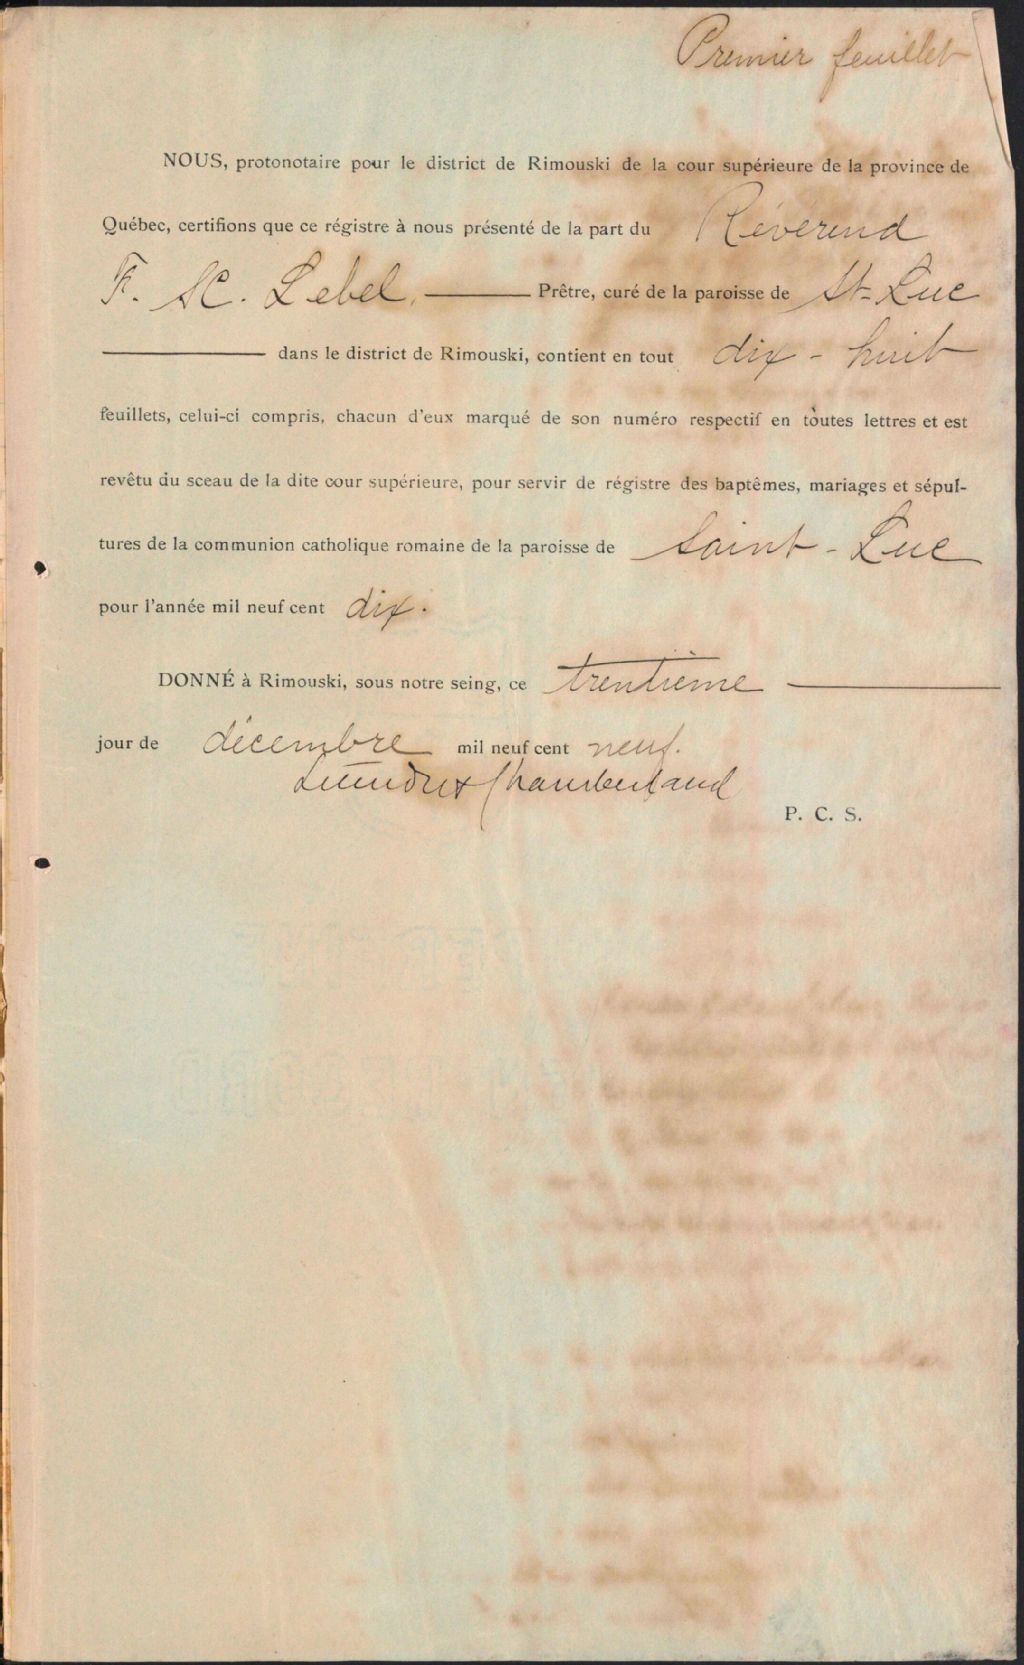 Premier feuillet
NOUS, protonotaire pour le district de Rimouski de la cour supérieure de la province de
Québec, certifions que ce régistre à nous présenté de la part du Révérend
F. X. Lebel, Prêtre, curé de la paroisse de St-Luc
dans le district de Rimouski, contient en tout dix-huit
feuillets, celui-ci compris, chacun d'eux marqué de son numéro respectif en toutes lettres et est
revêtu du sceau de la dite cour supérieure, pour servir de régistre des baptêmes, mariages et sépul-
tures de la communion catholique romaine de la paroisse de Saint-Luc
pour l'année mil neuf cent dix.
DONNÉ à Rimouski, sous notre seing, ce trentième
jour de décembre mil neuf cent neuf.
Chamberland
P. C. S.